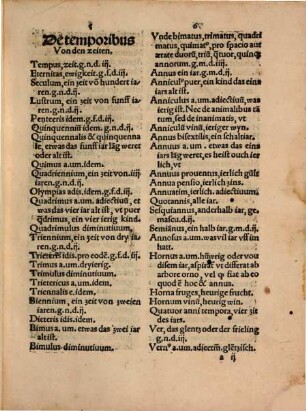 De temporibus
Von den zeiten.
Tempus, zeit. g. n. d. iij.
Eternitas, ewigkeit. g. f. d. iij.
Seculum, ein zeit vō hundert iaren. g. n. d. ij.
Lustrum, ein zeit von funff iaren. g. n. d. ij.
Penteris idem. g. f. d. iij.
Quinquennium idem. g. n. d. ij.
Quinquennalis & quinquenne, etwas das funff iar läg weret oder alt ist.
Quimus a. um. idem.
Quadriennium, ein zeit von vier iaren. g. n. d. ij.
Olympias adis. idem. g. f. d. iij.
Quadrimus a. um. adiectiuū, etwas das vier iar alt ist, vt puer quadrimus, ein vier ierig kind.
Quadrimulus diminutiuum.
Triennium, ein zeit von dry iaren. g. n. d. ij.
Trieteris idis. pro eodē. g. f. d. iij.
Trimus a. um. drierig.
Trimulus diminutiuum.
Trietericus a. um. idem.
Triennalis e. idem.
Biennium, ein zeit von zweien iaren. g. n. d. ij.
Dieteris idis. idem.
Bimus a. um. etwas das zwei iar alt ist.
Bimulus diminutiuum.
6
Vnde bimatus, trimatus, quadrimatus, quimat⁹, pro spacio aut etate
annorum. g. m. d. iiij.
Annus ein iar. g. m. d. ij.
Annicul⁹ puer, ein kind das eins iars alt ist.
Anniculus a. um. adiectiuū, was eins iars ist. Nec de animalibus tātum, sed de inanimatis, vt
Anniculū vinū, ieriger wein.
Annus bisextilis, ein schaltiar.
Annuus a. um. etwas das eins iars läg weret, es heißt ouch ierlich, vt
Annuus prouentus, ierlich gülte
Annua pensio, ierlich zins.
Annuatim, ierlich, adiectiuum.
Quotannis, alle iar.
Sesquiannus, anderhalb iar, gemascu. d. ij.
Semiānus, ein halb iar. g. m. d. ij.
Annosus a. um. was vil iar vff im hat.
Hornus a. um.
arbore orno, vel
quod ē hoc & annus.
Horna fruges, heurige frucht.
Hornum vinū, heurig win.
Quatuor anni tempora, vier zeit des iars.
Ver, das glentz oder der frieling g. n. d. iij.
Vern⁹ a. um. adiectiuū. glētzisch.
a ij